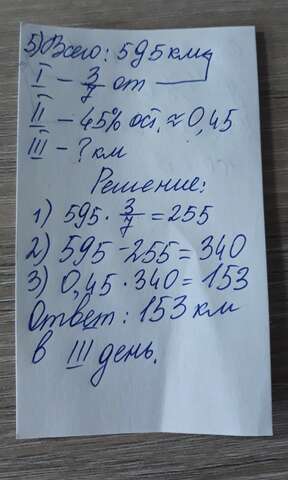 5) Всего: 595 км
I – 3/7 от
II – 45% ост. ≈ 0,45
III – ? км
Решение:
1) 595 · 3/7 = 255
2) 595 – 255 = 340
3) 0,45 · 340 = 153
Ответ: 153 км
в III день.